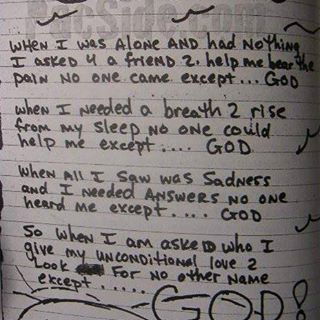 PacSide.com
WHEN I WAS ALONE AND HAD NOTHING
I ASKED 4 A FRIEND 2 HELP ME BEAR THE
PAIN NO ONE CAME EXCEPT... GOD
WHEN I NEEDED A BREATH 2 RISE
FROM MY SLEEP NO ONE COULD
HELP ME EXCEPT.... GOD
WHEN ALL I SAW WAS SADNESS
AND I NEEDED ANSWERS NO ONE
HEARD ME EXCEPT..... GOD
SO WHEN I AM ASKED WHO I
GIVE MY UNCONDITIONAL LOVE 2
LOOK FOR NO OTHER NAME
EXCEPT......
GOD!